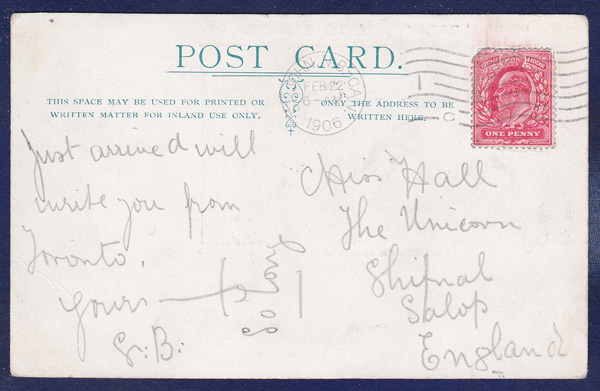 POST CARD.
THIS SPACE MAY BE USED FOR PRINTED OR
WRITTEN MATTER FOR INLAND USE ONLY.
ONLY THE ADDRESS TO BE
WRITTEN HERE.
FEB 22
1906
ONE PENNY
Just arrived will
write you from
Toronto.
Yours
G.B.
Miss Hall
The Unicorn
Shifnal
Salop
England